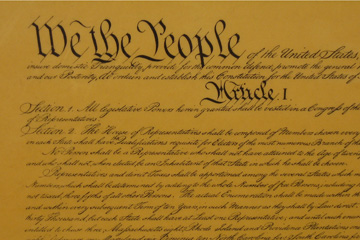 We the People of the United States,
insure domestic Tranquility, provide for the common defence, promote the general
and our Posterity, do ordain and establish this Constitution for the United States of
Article I
Section 1. All legislative Powers herein granted shall be vested in a Congress of the
of Representatives.
Section 2. The House of Representatives shall be composed of Members chosen every
in each State shall have Qualifications requisite for Electors of the most numerous Branch of the
No Person shall be a Representative who shall not have attained to the Age of twenty
and who shall not, when elected, be an Inhabitant of that State in which he shall be chosen.
Representatives and direct Taxes shall be apportioned among the several States which
Numbers, which shall be determined by adding to the whole Number of free Persons, including
not taxed, three fifths of all other Persons. The actual Enumeration shall be made
and within every subsequent Term of ten Years, in such Manner as they shall by Law direct.
thirty Thousand, but each State shall have at Least one Representative; and until such
entitled to chuse three, Massachusetts eight, Rhode Island and Providence Plantations